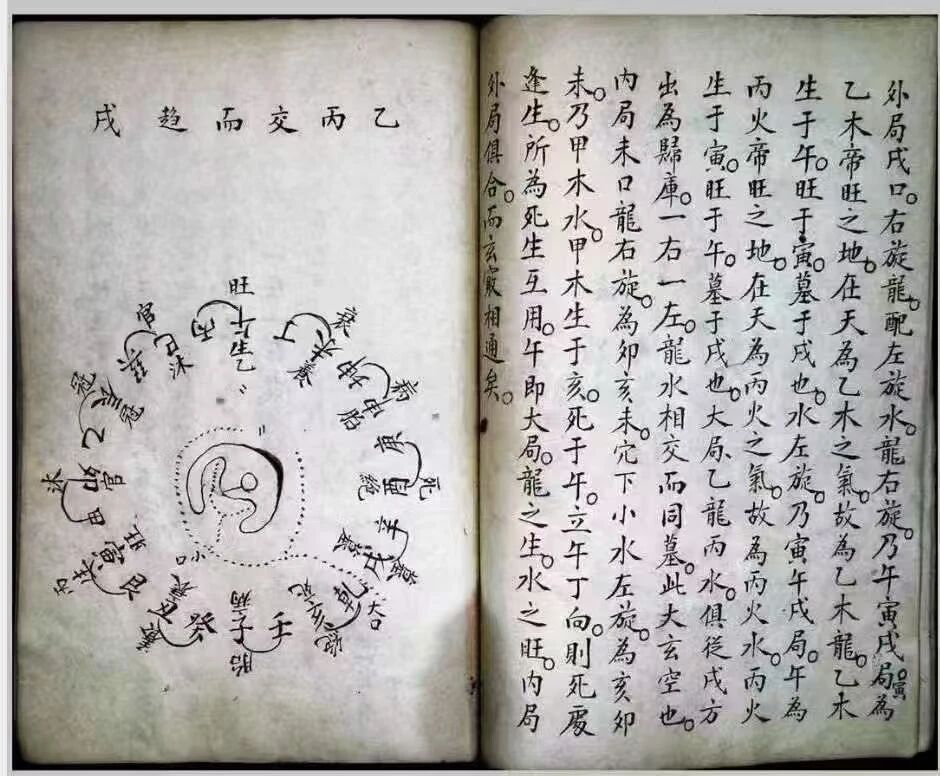 外局戌口。右旋龍。配左旋水。龍右旋。乃午寅戌局。寅為
乙木帝旺之地。在天為乙木之氣。故為乙木龍。乙木
生于午。旺于寅。墓于戌也。水左旋。乃寅午戌局。午為
丙火帝旺之地。在天為丙火之氣。故為丙火水。丙火
生于寅。旺于午。墓于戌也。大局乙龍丙水。俱從戌方
出為歸庫。一右一左。龍水相交而同墓。此大玄空也。
內局未口龍右旋。為卯亥未。穴下小水左旋。為亥卯
未。乃甲木水。甲木生于亥。死于午。立午丁向。則死處
逢生。所為死生互用。午即大局。龍之生。水之旺。內局
外局俱合。而玄竅相通矣。
乙丙交而趨戌
旺
丙午
生乙
衰
丁未
養
病
坤申
胎
死
庚酉
絕
墓
辛戌
墓
大口
絕
乾亥
死
壬子
病
胎
癸丑
衰
養
小口
艮寅
旺
生
甲卯
官
沐
乙辰
冠
冠
巽巳
沐
官